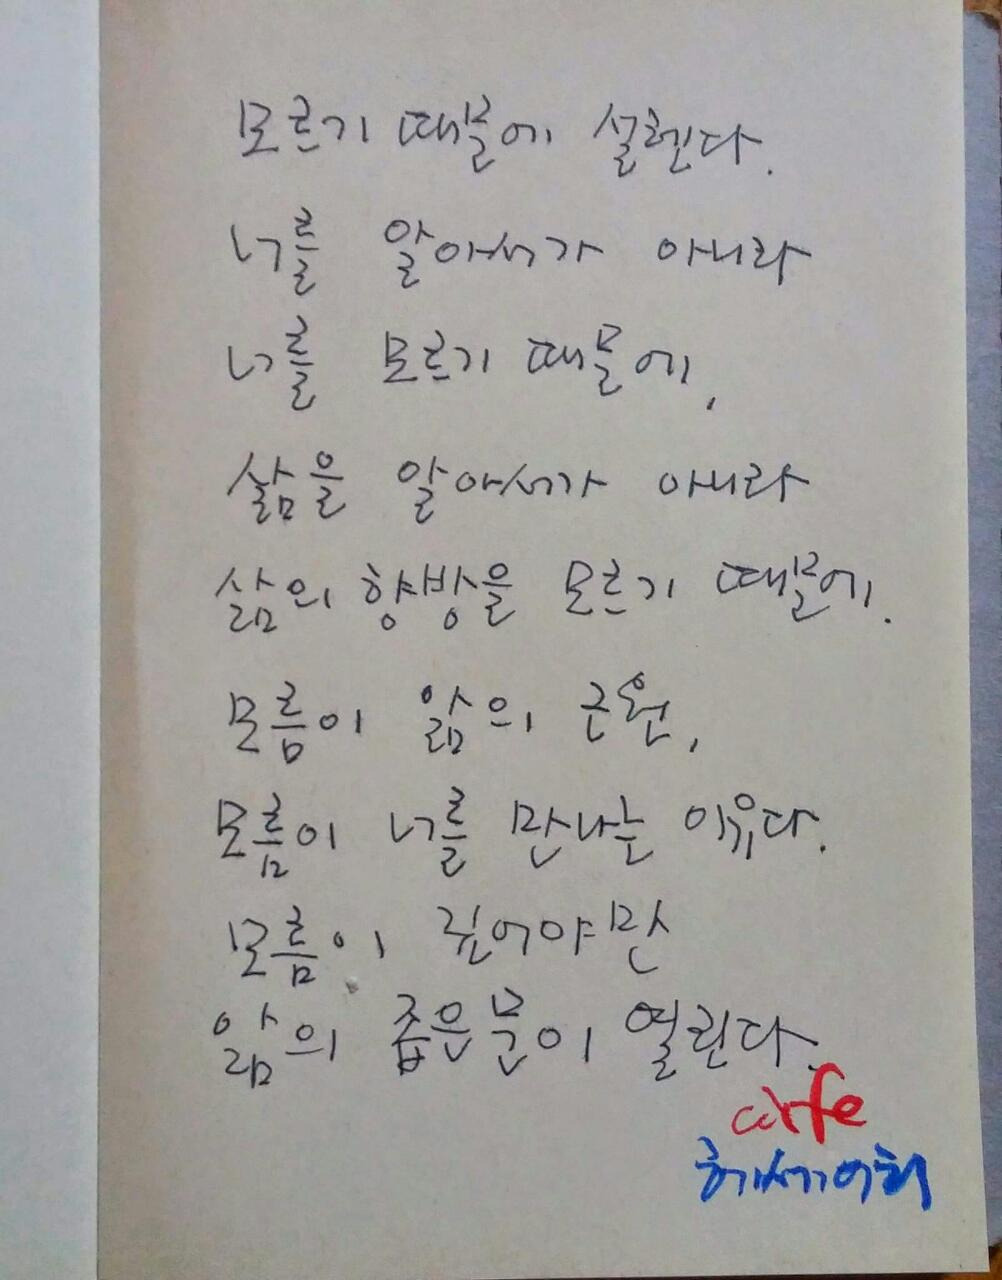 모르기 때문에 설렌다.
너를 알아서가 아니라
너를 모르기 때문에,
삶을 알아서가 아니라
삶의 향방을 모르기 때문에.
모름이 앎의 근원,
모름이 너를 만나는 이유다.
모름이 깊어야만
앎의 좁은문이 열린다.
cafe